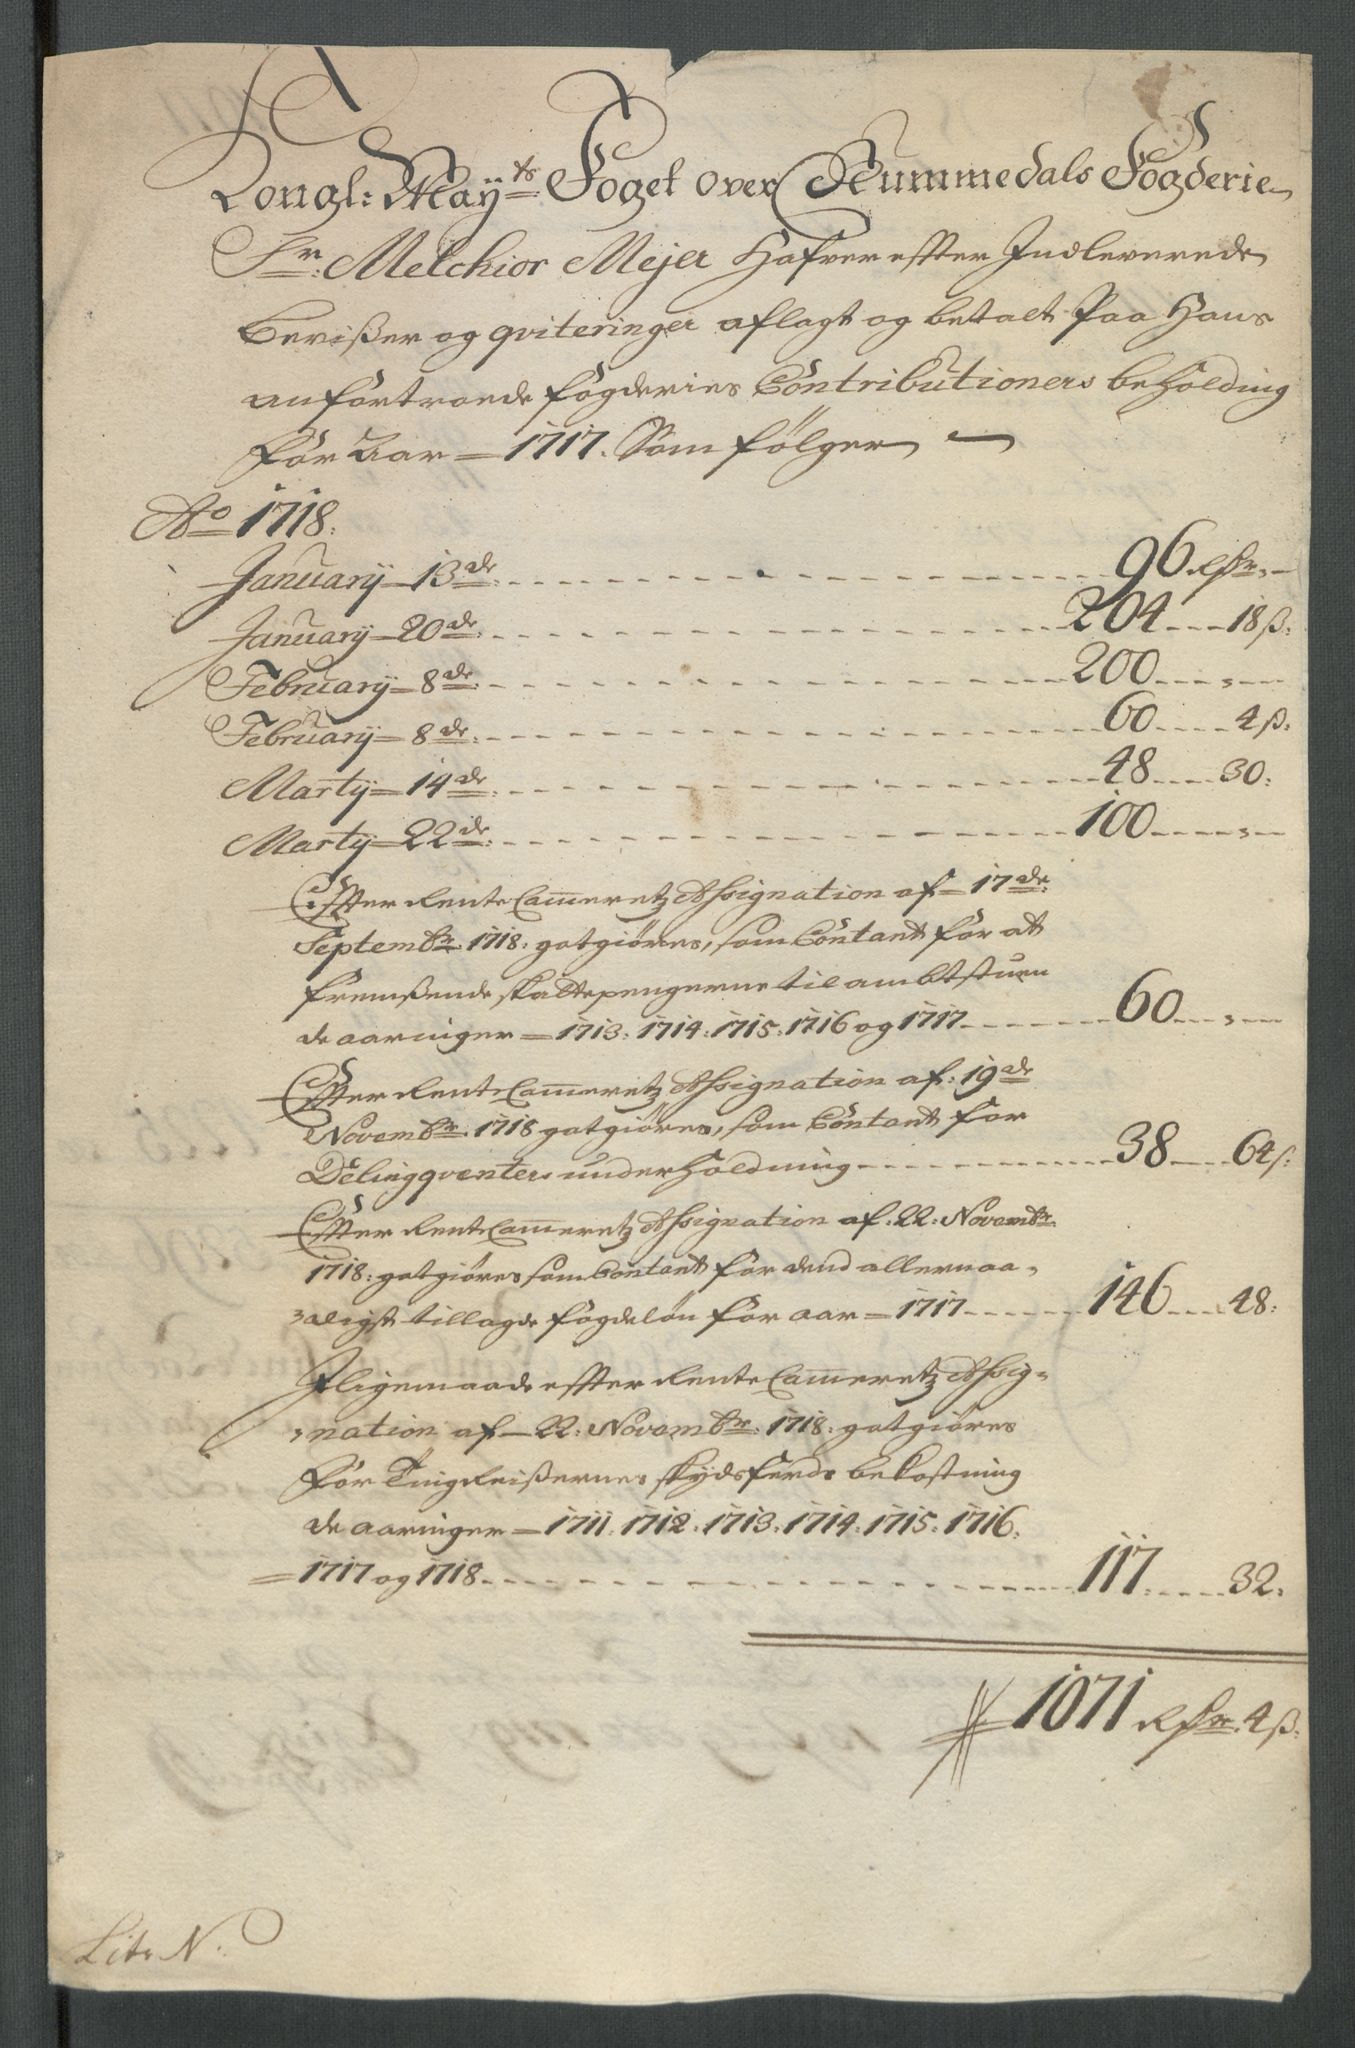 Kongl: Mayts Foget over Nummedals Fogderie
Sr: Melchior Mejer Hafver effter Indleverede
bevißer og qviteringer aflagt og betalt Paa Hans
anfortroede fogderies Contributioners beholding
for Aar 1717. Som følger
Ao 1718.
January 13de: 96 Rdr: -
January 20de: 204 18 ß:
February 8de: 200 -
February 8de: 60 4 ß:
Marty 14de: 48 30:
Marty 22de: 100 -
Effter Rente Cammeretz Assignation af 17de:
Septembr: 1718: gotgiøres, som Contant for at
fremßende skattepengerne til ambtstuen
de aaringer 1713: 1714: 1715: 1716 og 1717 60 -
Effter Rente Cammeretz Assignation af: 19de
Novembr: 1718 gotgiøres, som Contant for
Delingqventers underholdning 38 64 ß:
Effter Rente Cammeretz Assignation af: 22: Novembr:
1718: gotgiøres som Contant for dend allernaa-
digst tillagde fogdeløn for aar 1717 146 48:
Iligemaade effter Rente Cammeretz Assig-
nation af 22: Novembr: 1718: gotgiøres
for Tingreißernes skydsferds bekostning
de aaringer 1711: 1712: 1713: 1714: 1715: 1716:
1717 og 1718 117: 32:
1071 Rdr: 4 ß:
Litr N: